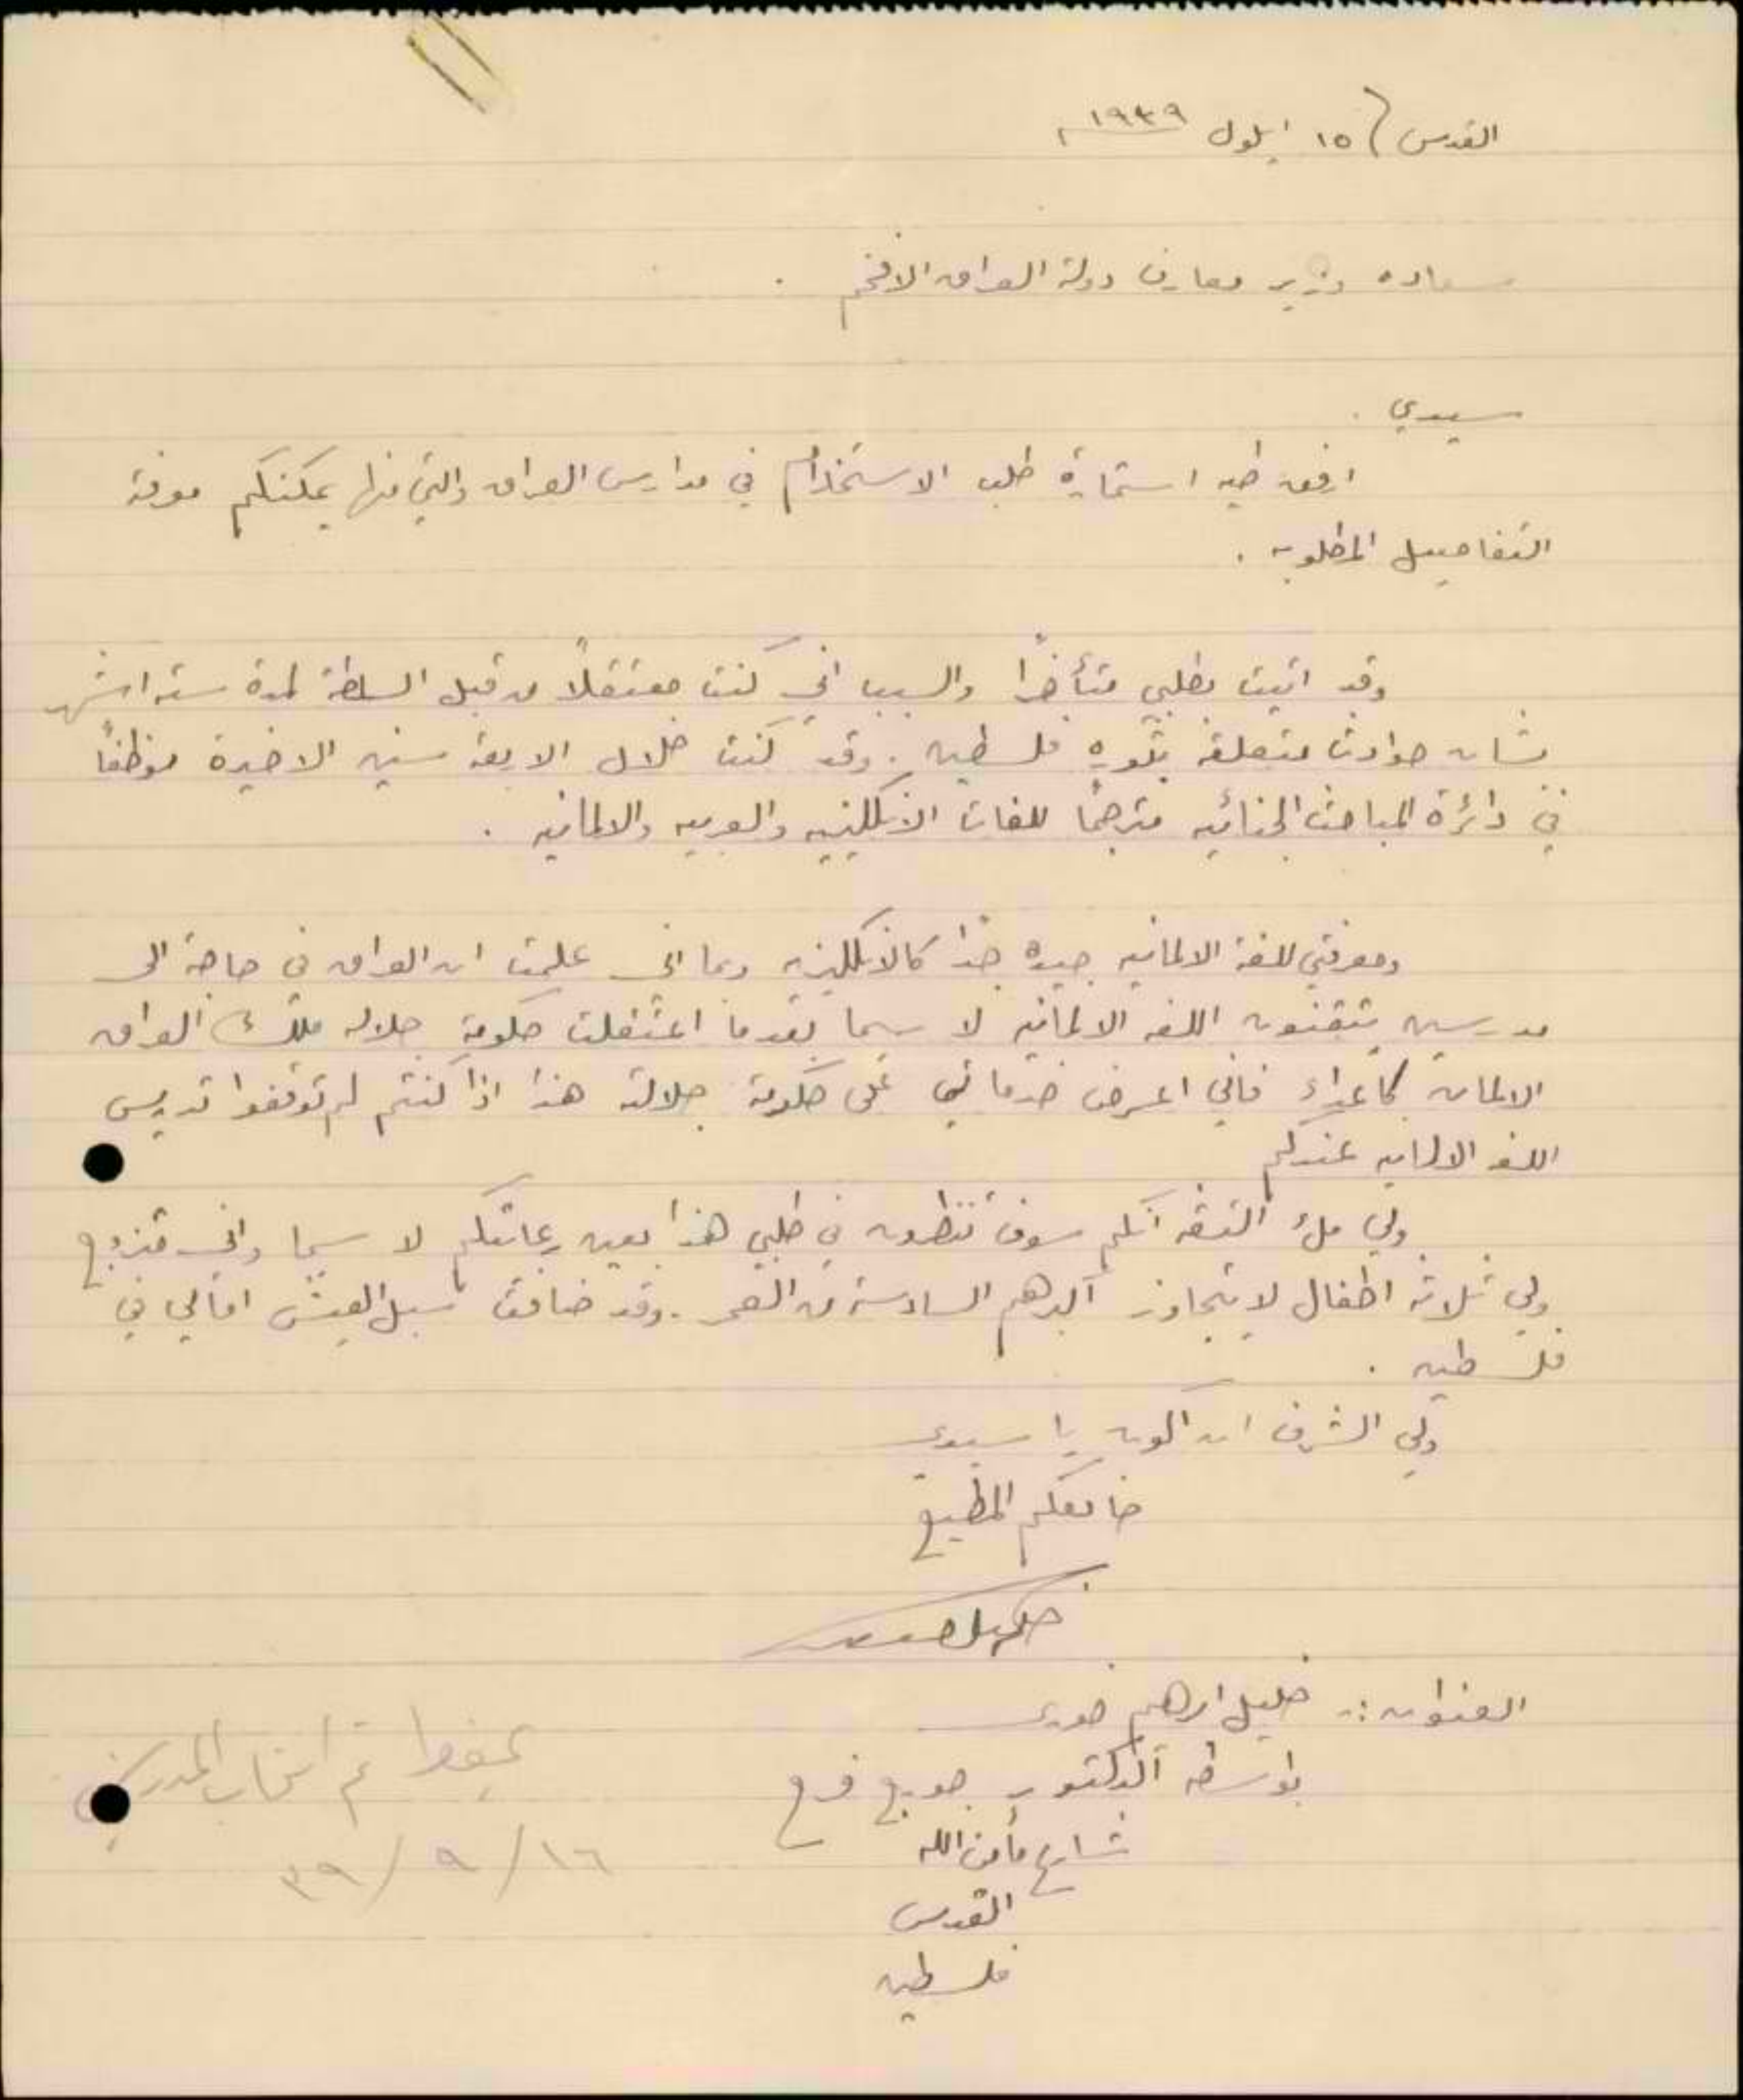 القدس ١٥ ايلول ١٩٣٩م
سعاده وزير معارف دولة العراق الافخم .
سيدي .
ارفق طيه استمارة طلب الاستخدام في مدارس العراق والتي منها يمكنكم معرفة
التفاصيل المطلوبه .
وقد اتيت بطلبي متأخراً والسبب اني كنت معتقلاً من قبل السلطة لمدة سته اشهر
بشان حوادث متعلقه بثوره فلسطين . وقد كنت خلال الاربعة سنين الاخيرة موظفاً
في دائرة المباحث الجنائيه مترجماً للغات الانكليزيه والعربيه والالمانيه .
ومعرفتي للغة الالمانيه جيده جداً كالانكليزيه وبما اني علمت ان العراق في حاجة الى
مدرسين يتقنون اللغه الالمانيه لا سيما بعدما اعتقلت حكومة جلاله ملك العراق
الالمان كأعداء فاني اعرض خدماتي على حكومة جلالته هذا اذا كنتم لم توقفوا تدريس
اللغه الالمانيه عندكم
ولي ملء الثقه انكم سوف تنظرون في طلبي هذا بعين رعايتكم لا سيما واني متزوج
ولي ثلاثة اطفال لا يتجاوز اكبرهم السادسة من العمر . وقد ضاقت سبل العيش امامي في
فلسطين .
ولي الشرف ان اكون يا سيدي
خادمكم المطيع
العنوان :- خليل ابرهيم خوري
بواسطه الدكتور جورج فرح
شارع مأمن الله
القدس
فلسطين
يحفظ تم انتخاب المدرسين
١٦/٩/٣٩